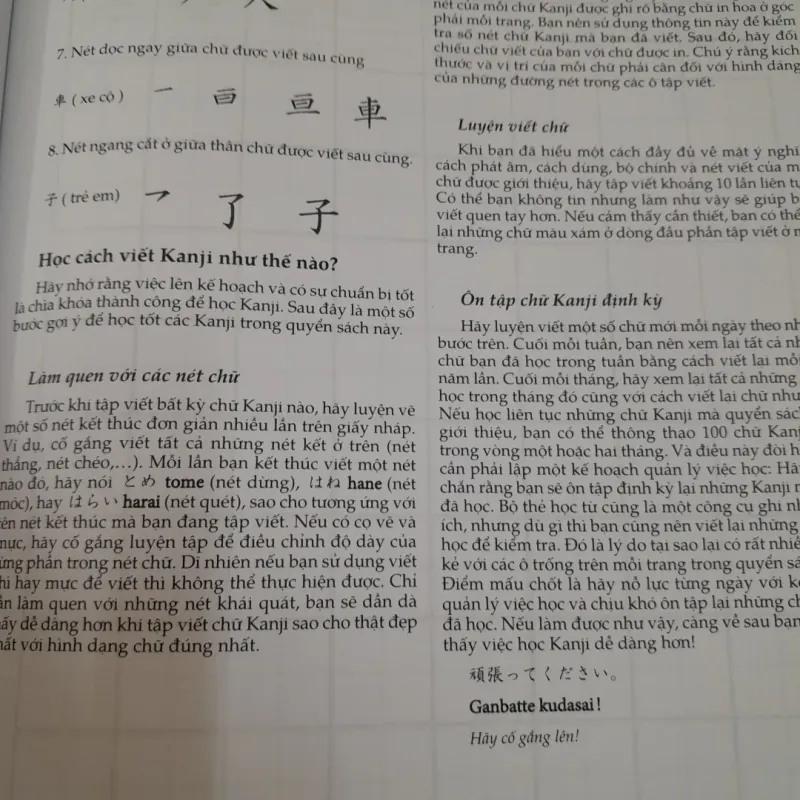 7. Nét dọc ngay giữa chữ được viết sau cùng
車 ( xe cộ ) 一 車
8. Nét ngang cắt ở giữa thân chữ được viết sau cùng.
子 ( trẻ em) 了 子
Học cách viết Kanji như thế nào?
Hãy nhớ rằng việc lên kế hoạch và có sự chuẩn bị tốt
là chìa khóa thành công để học Kanji. Sau đây là một số
bước gợi ý để học tốt các Kanji trong quyển sách này.
Làm quen với các nét chữ
Trước khi tập viết bất kỳ chữ Kanji nào, hãy luyện vẽ
một số nét kết thúc đơn giản nhiều lần trên giấy nháp.
Ví dụ, cố gắng viết tất cả những nét kết ở trên (nét
thẳng, nét chéo,…). Mỗi lần bạn kết thúc viết một nét
nào đó, hãy nói とめ tome (nét dừng), はね hane (nét
móc), hay はらい harai (nét quét), sao cho tương ứng với
nét kết thúc mà bạn đang tập viết. Nếu có cọ vẽ và
mực, hãy cố gắng luyện tập để điều chỉnh độ dày của
từng phần trong nét chữ. Dĩ nhiên nếu bạn sử dụng viết
chì hay mực để viết thì không thể thực hiện được. Chỉ
cần làm quen với những nét khái quát, bạn sẽ dần dà
thấy dễ dàng hơn khi tập viết chữ Kanji sao cho thật đẹp
nhất với hình dạng chữ đúng nhất.
nét của mỗi chữ Kanji được ghi rõ bằng chữ in hoa ở góc
phải mỗi trang. Bạn nên sử dụng thông tin này để kiểm
tra số nét chữ Kanji mà bạn đã viết. Sau đó, hãy đối
chiếu chữ viết của bạn với chữ được in. Chú ý rằng kích
thước và vị trí của mỗi chữ phải cân đối với hình dáng
của những đường nét trong các ô tập viết.
Luyện viết chữ
Khi bạn đã hiểu một cách đầy đủ về mặt ý nghĩ
cách phát âm, cách dùng, bộ chính và nét viết của m
chữ được giới thiệu, hãy tập viết khoảng 10 lần liên tụ
Có thể bạn không tin nhưng làm như vậy sẽ giúp b
viết quen tay hơn. Nếu cảm thấy cần thiết, bạn có thể
lại những chữ màu xám ở dòng đầu phần tập viết ở m
trang.
Ôn tập chữ Kanji định kỳ
Hãy luyện viết một số chữ mới mỗi ngày theo nh
bước trên. Cuối mỗi tuần, bạn nên xem lại tất cả nh
chữ bạn đã học trong tuần bằng cách viết lại mỗi
năm lần. Cuối mỗi tháng, hãy xem lại tất cả những
học trong tháng đó cũng với cách viết lại chữ như
Nếu học liên tục những chữ Kanji mà quyển sách
giới thiệu, bạn có thể thông thạo 100 chữ Kanj
trong vòng một hoặc hai tháng. Và điều này đòi h
cần phải lập một kế hoạch quản lý việc học: Hã
chắn rằng bạn sẽ ôn tập định kỳ lại những Kanji m
đã học. Bộ thẻ học từ cũng là một công cụ ghi nh
ích, nhưng dù gì thì bạn cũng nên viết lại những
học để kiểm tra. Đó là lý do tại sao lại có rất nhiề
kẻ với các ô trống trên mỗi trang trong quyển sá
Điểm mấu chốt là hãy nỗ lực từng ngày với kế
quản lý việc học và chịu khó ôn tập lại những ch
đã học. Nếu làm được như vậy, càng về sau bạn
thấy việc học Kanji dễ dàng hơn!
頑張ってください。
Ganbatte kudasai!
Hãy cố gắng lên!